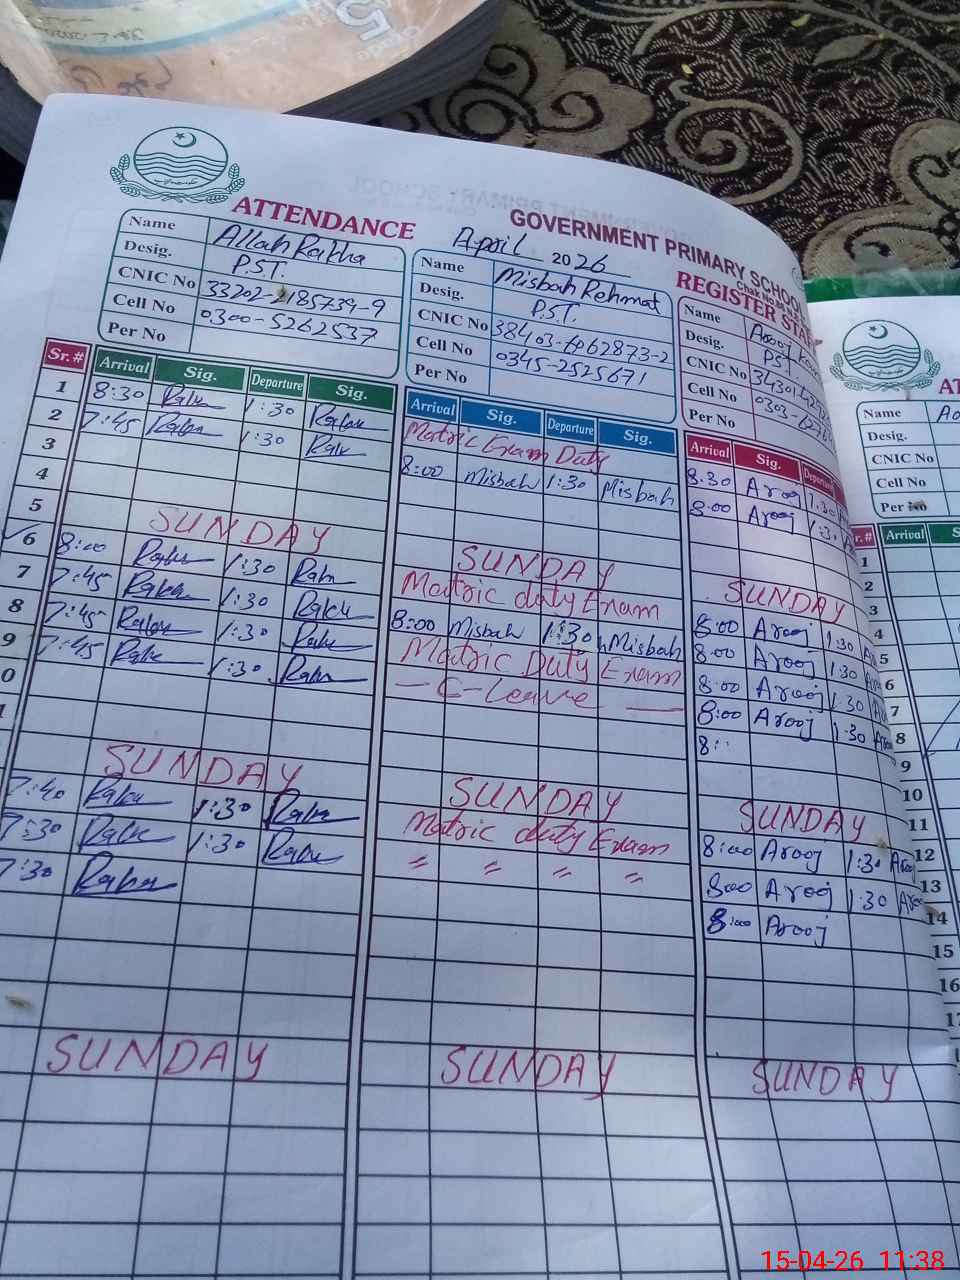 Grade 5
ATTENDANCE
GOVERNMENT PRIMARY SCHOOL
April 2026
Chak No.
REGISTER STAFF
Name Allah Rakha
Desig. P.S.T.
CNIC No 33202-2185739-9
Cell No 0300-5262537
Per No
Name Misbah Rehmat
Desig. P.S.T.
CNIC No 38403-6962873-2
Cell No 0345-2525671
Per No
Name Arooj
Desig. PST
CNIC No
Cell No
Per No
Sr.# Arrival Sig. Departure Sig.
1 8:30 Rakha 1:30 Rakha
2 7:45 Rakha 1:30 Rakha
3
4
5 SUNDAY
6 8:00 Rakha 1:30 Rakha
7 7:45 Rakha 1:30 Rakha
8 7:45 Rakha 1:30 Rakha
9 7:45 Rakha 1:30 Rakha
0
1
SUNDAY
7:40 Rakha 1:30 Rakha
7:30 Rakha 1:30 Rakha
7:30 Rakha
SUNDAY
Arrival Sig. Departure Sig.
Matric Exam Duty
8:00 Misbah 1:30 Misbah
SUNDAY
Matric duty Exam
8:00 Misbah 1:30 Misbah
Matric Duty Exam
— C-Leave —
SUNDAY
Matric duty Exam
〃 〃 〃 〃
SUNDAY
Arrival Sig. Departure
8.30 Arooj 1:30
8:00 Arooj 1:30
SUNDAY
8:00 Arooj 1:30
8:00 Arooj 1:30
8:00 Arooj 1:30
8:00 Arooj 1:30
8:
SUNDAY
8:00 Arooj 1:30 Arooj
8:00 Arooj 1:30
8:00 Arooj
SUNDAY
Name
Desig.
CNIC No
Cell No
Per No
Arrival
1
2
3
4
5
6
7
8
9
10
11
12
13
14
15
16
15-04-26 11:38